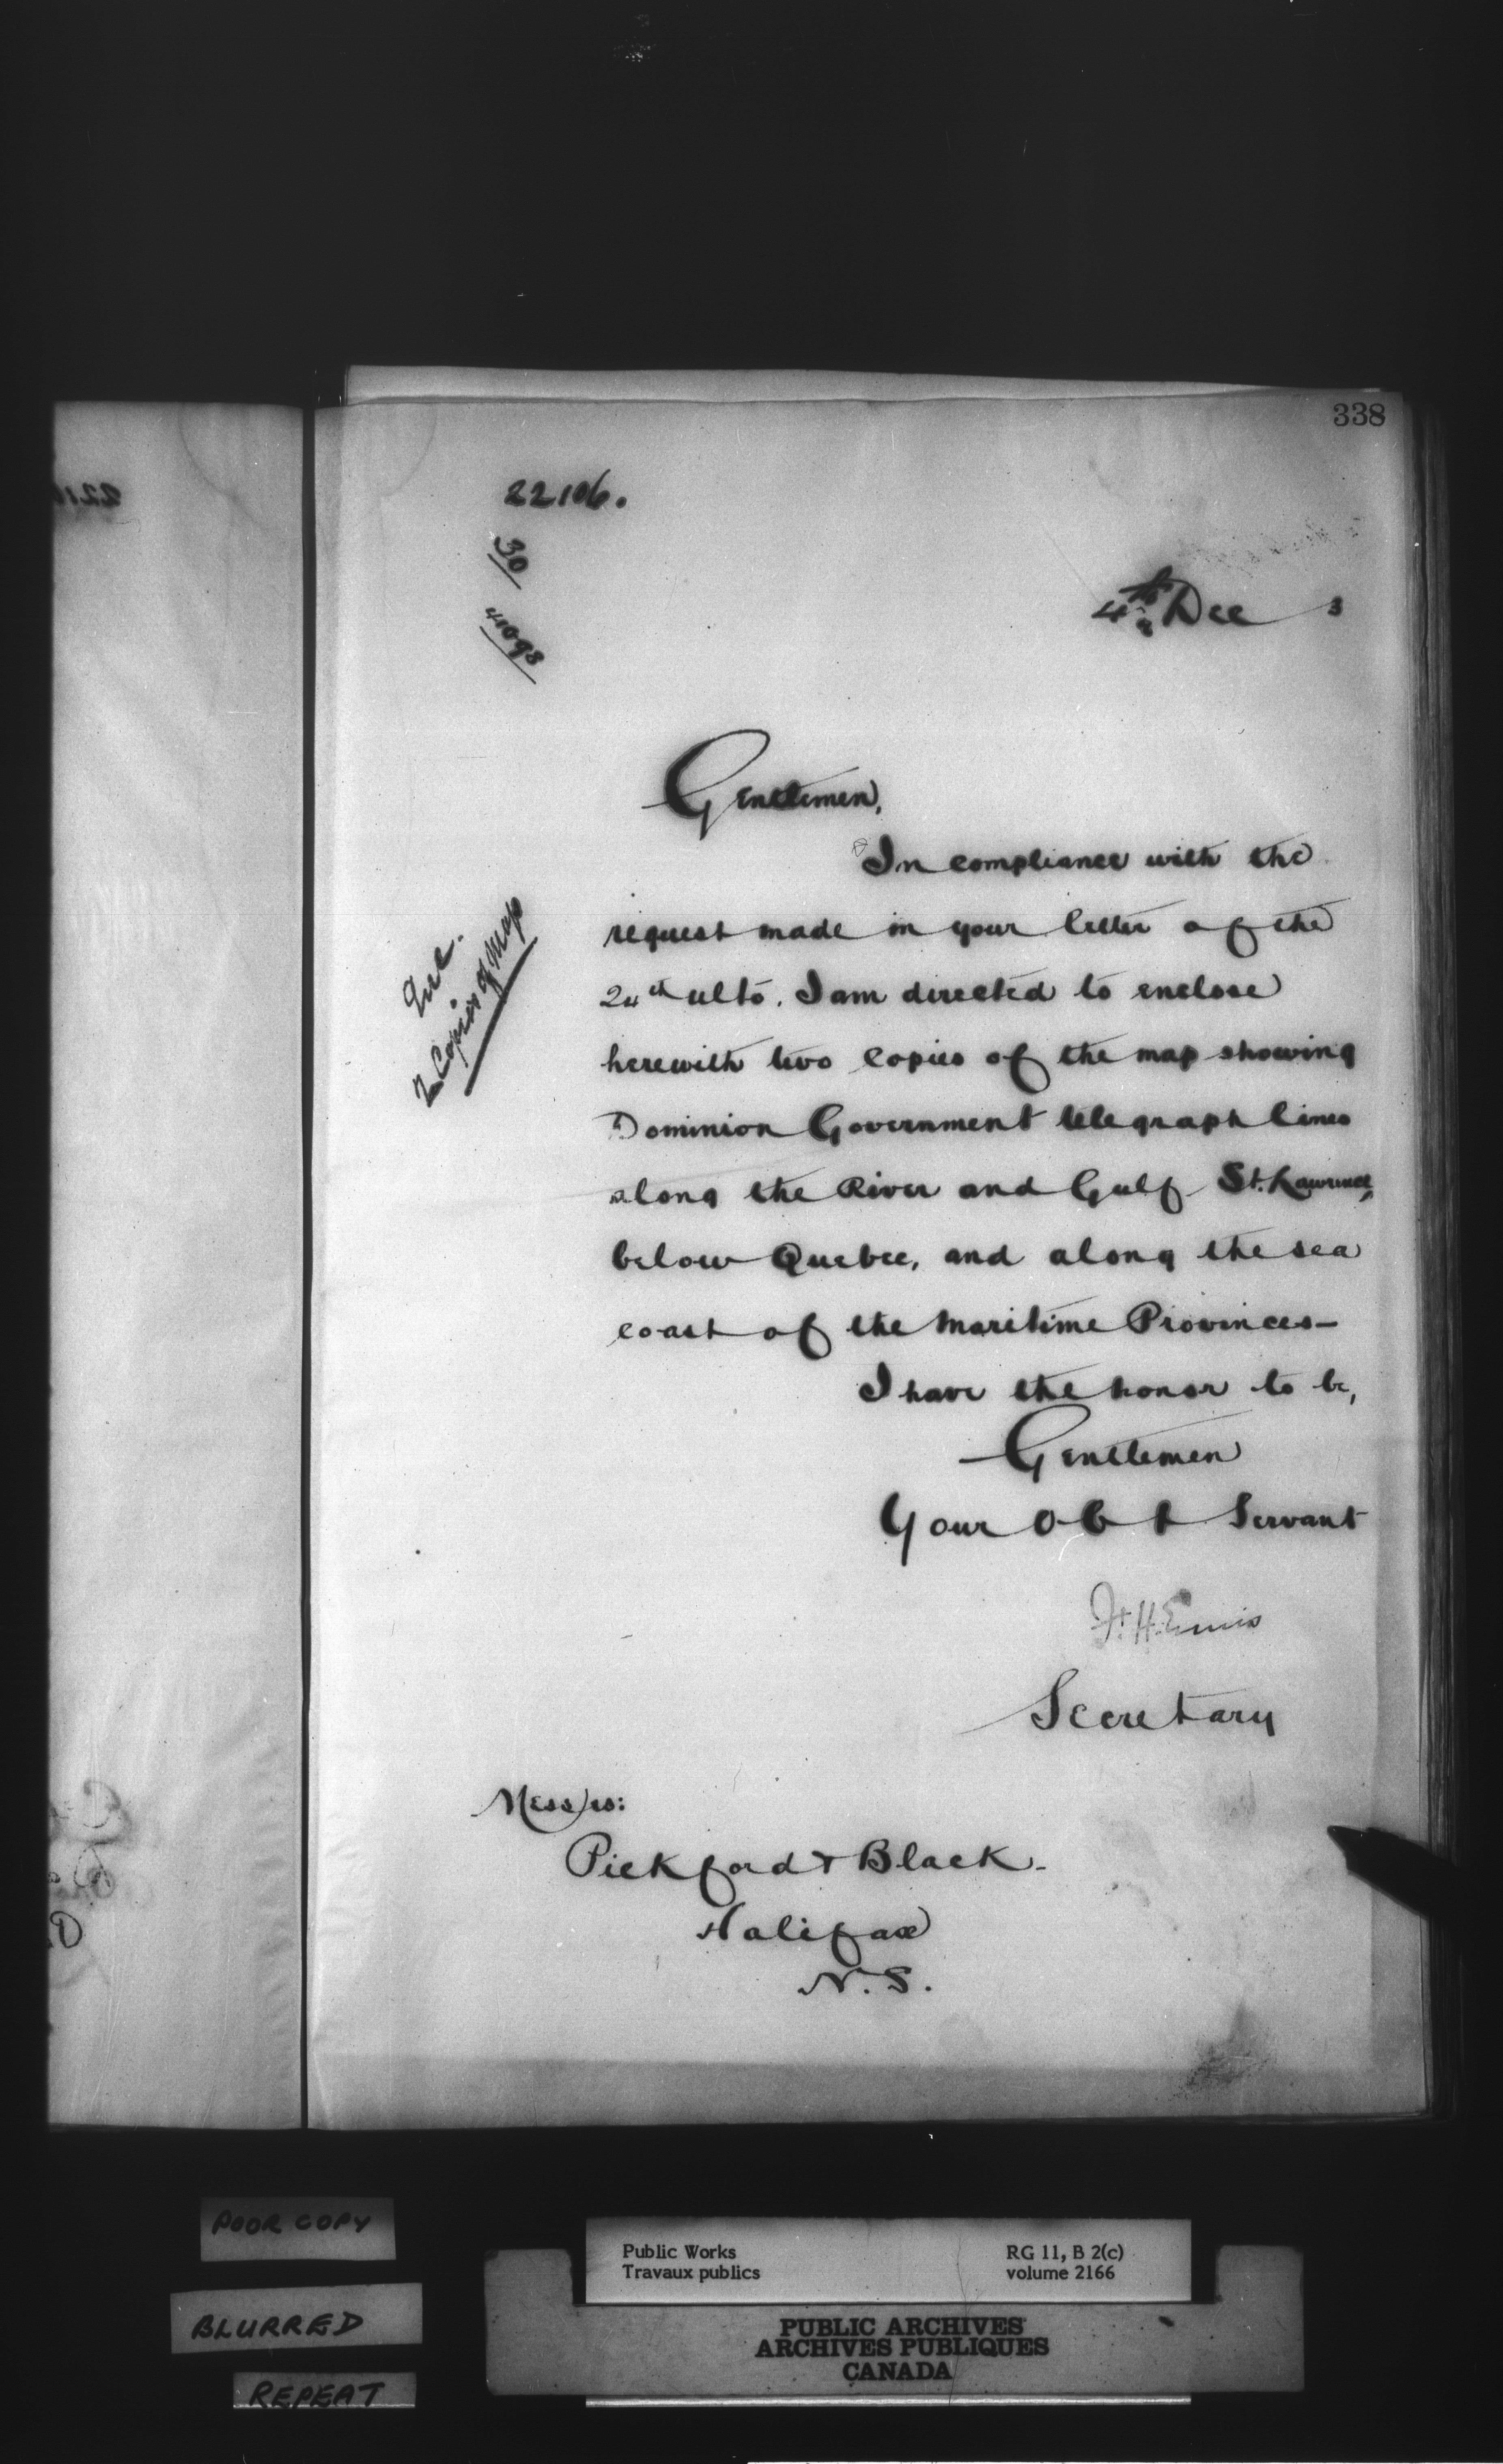 338
22106.
30
41098
4th Dec 3
Gentlemen,
In compliance with the
request made in your letter of the
24th ulto. I am directed to enclose
herewith two copies of the map showing
Dominion Government telegraph lines
along the River and Gulf St. Lawrence,
below Quebec, and along the sea
coast of the Maritime Provinces—
Enc.
2 Copies of Map
I have the honor to be,
Gentlemen
Your Obt Servant
F. H. Ennis
Secretary
Messrs:
Pickford & Black.
Halifax
N.S.
POOR COPY
BLURRED
REPEAT
Public Works
Travaux publics
RG 11, B 2(c)
volume 2166
PUBLIC ARCHIVES
ARCHIVES PUBLIQUES
CANADA